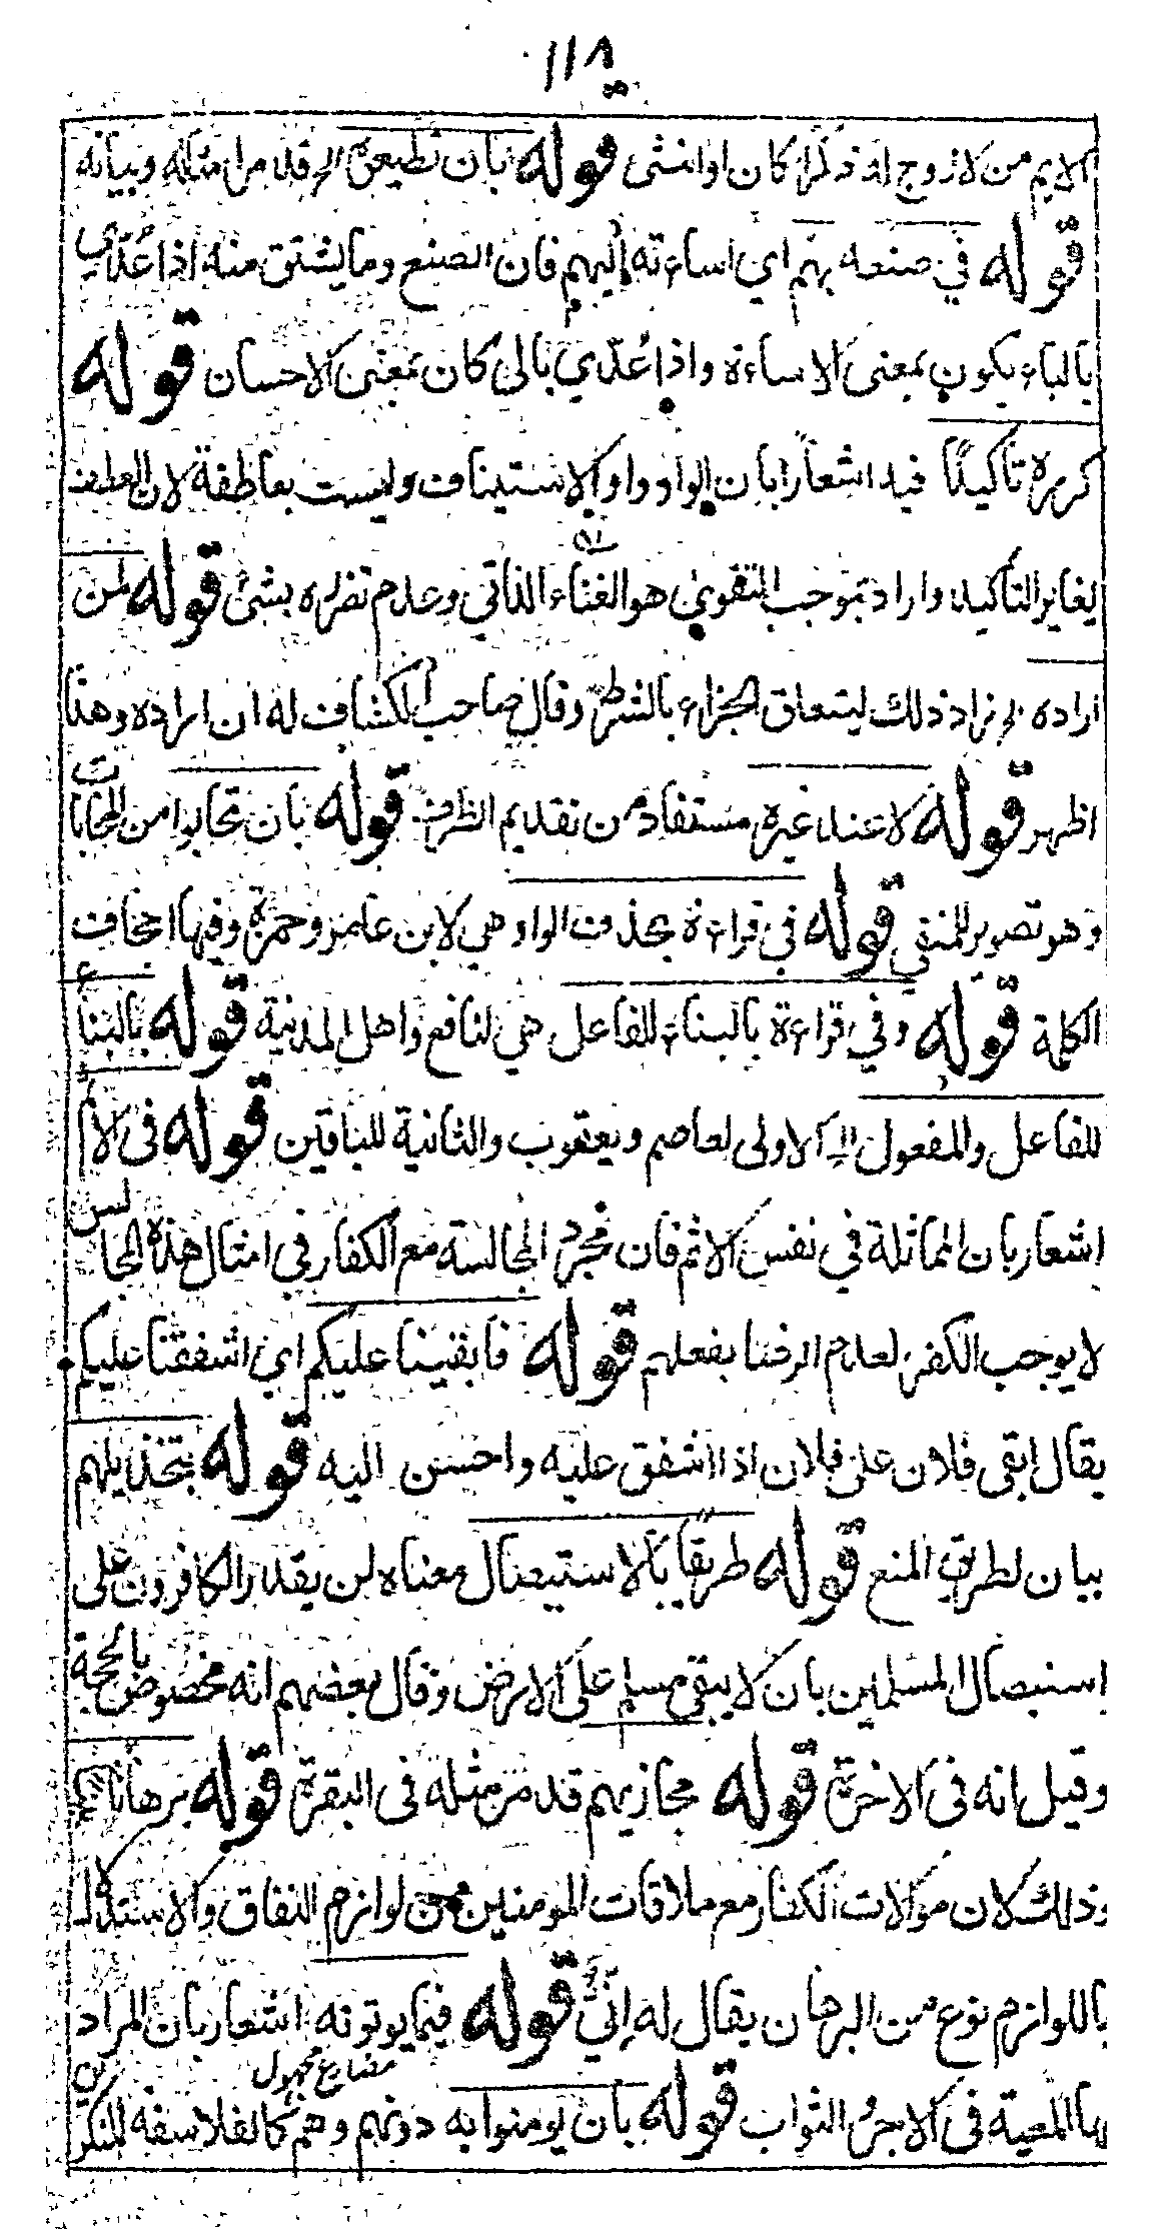 ١١٨
الايم من لا زوج له ذكرا كان او انثى قوله بان تطيعوهم الخ قد مرا مثله وبيانه
قوله في صنعه بهم اي اساءته اليهم فان الصنع وما يشتق منه اذا عُدّي
بالباء يكون بمعنى الاساءة واذا عُدّي بالى كان بمعنى الاحسان قوله
كرره تاكيدًا فيه اشعار بان الواو واو الاستيناف وليست بعاطفة لان العطف
يغاير التاكيد واراد بموجب التقوى هو الغناء الذاتي وعدم تضرره بشئ قوله لمن
اراده زاد ذلك ليتعلق الجزاء بالشرط وقال صاحب الكشاف له ان اراده وهذا
اظهر قوله لا عند غيره مستفاد من تقديم الظرف قوله بان تحابوا من المحابات
وهو تصوير للمنفي قوله في قراءة بحذف الواو هي لابن عامر وحمزة وفيها اجحاف
الكلمة قوله وفي قراءة بالبناء للفاعل هي لنافع واهل المدينة قوله بالبناء
للفاعل والمفعول الاولى لعاصم ويعقوب والثانية للباقين قوله فى الاثم
اشعار بان المماثلة في نفس الاثم فان مجرد المجالسة مع الكفار في امثال هذه المجالس
لا يوجب الكفر لعدم الرضا بفعلهم قوله فابقينا عليكم اي اشفقنا عليكم
يقال ابقى فلان على فلان اذا اشفق عليه واحسن اليه قوله بتخذيلهم
بيان لطريق المنع قوله طريقا بالاستيصال معناه لن يقدر الكافرون على
استيصال المسلمين بان لا يبقى مسلم على الارض وقال بعضهم انه مخصوص بالحجة
وقيل انه فى الاخرة قوله مجازيهم قد مر مثله فى البقرة قوله برهانا
وذلك لان موالات الكفار مع ملاقات المومنين من لوازم النفاق والاستدلال
باللوازم نوع من البرهان يقال له إنّيّ قوله فيما يوتونه اشعار بان المراد
بها المعية فى الاجر الثواب قوله بان يومنوا به دونهم وهم كالفلاسفه المنكرين
مضارع مجهول